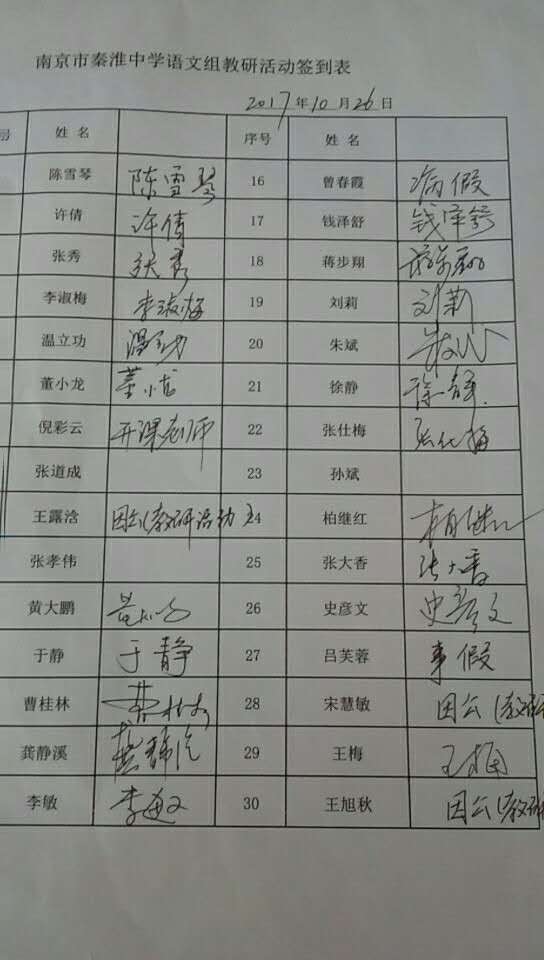 南京市秦淮中学语文组教研活动签到表
2017年10月26日
号 姓名 序号 姓名
陈雪琴 陈雪琴 16 曾春霞 病假
许倩 许倩 17 钱泽舒 钱泽舒
张秀 张秀 18 蒋步翔
李淑梅 李淑梅 19 刘莉 刘莉
温立功 温立功 20 朱斌
董小龙 董小龙 21 徐静 徐静
倪彩云 开课老师 22 张仕梅 张仕梅
张道成 23 孙斌
王露浛 因公(教研活动) 24 柏继红 柏继红
张孝伟 25 张大香 张大香
黄大鹏 黄大鹏 26 史彦文 史彦文
于静 于静 27 吕芙蓉 事假
曹桂林 曹桂林 28 宋慧敏 因公(教研
龚静溪 龚静溪 29 王梅 王梅
李敏 李敏 30 王旭秋 因公(教研